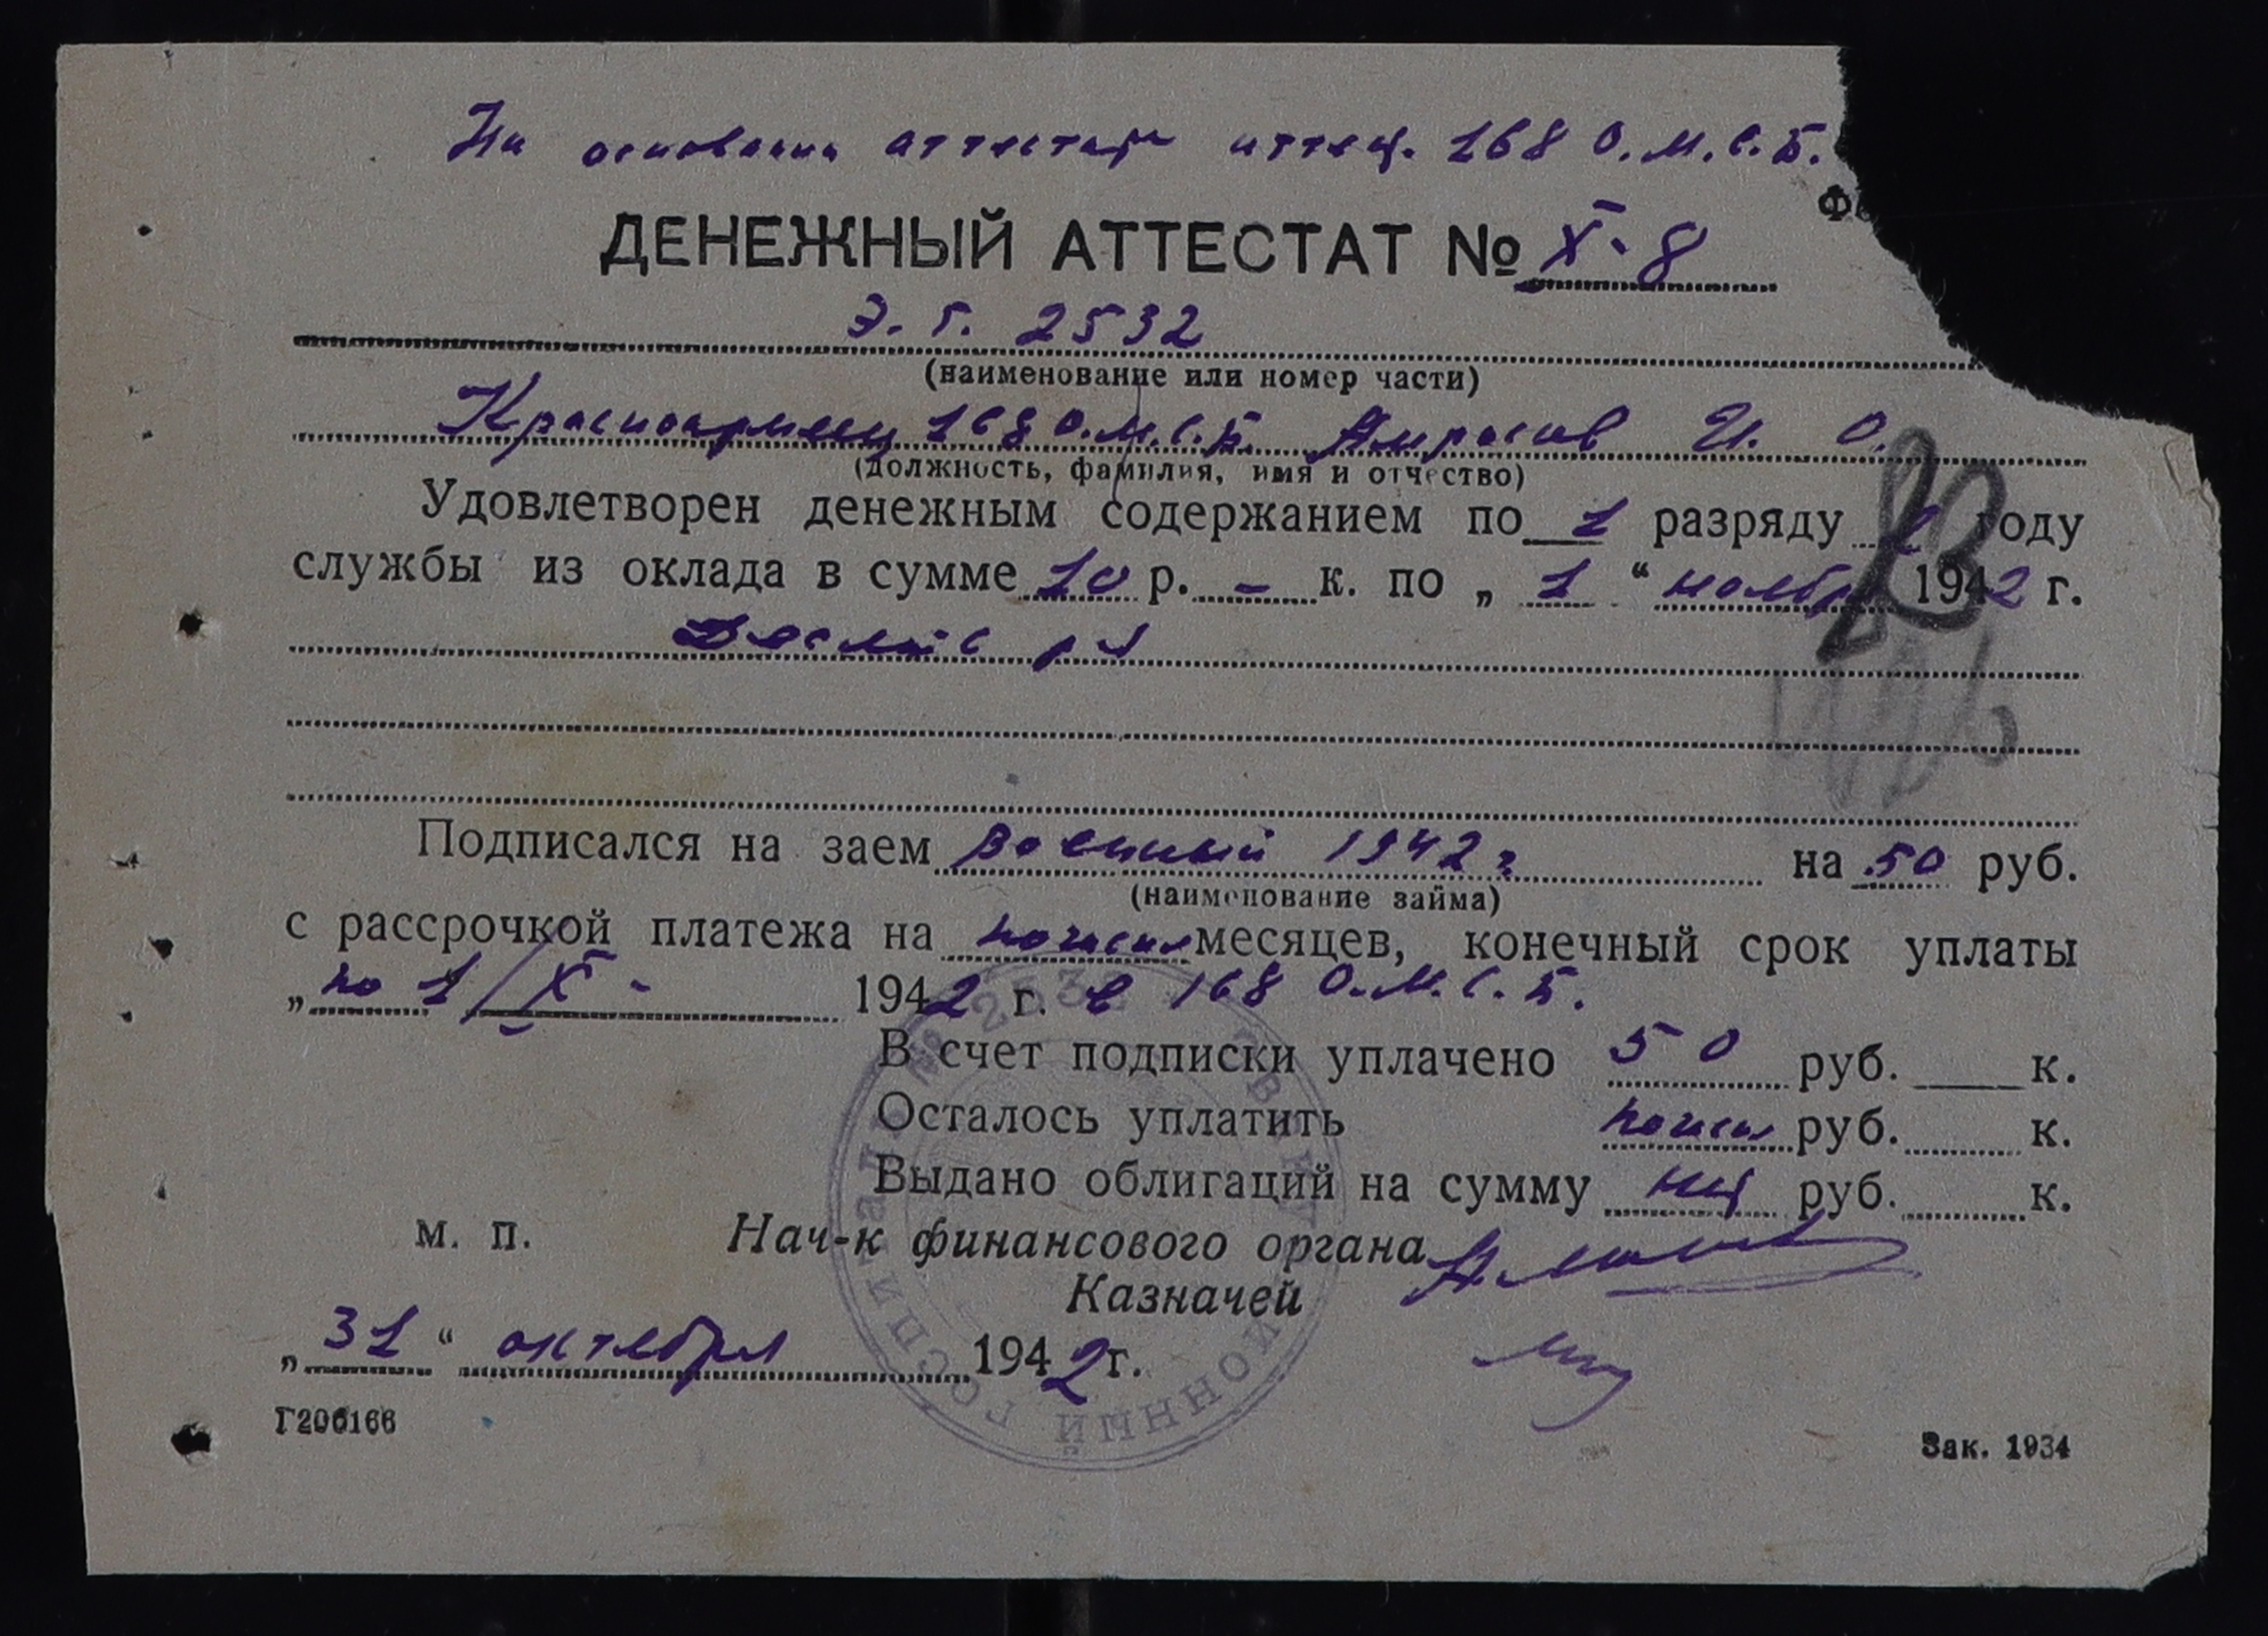 На основании аттестата 168 О.М.С.Б.
Ф
ДЕНЕЖНЫЙ АТТЕСТАТ № X-8
Э.Г. 2532
(наименование или номер части)
Красноармеец 168 О.М.С.Б. И. О.
(должность, фамилия, имя и отчество)
Удовлетворен денежным содержанием по 1 разряду оду
службы из оклада в сумме 10 р. - к. по „ 1 “ ноября 1942 г.
Подписался на заем Военный 1942 г. на 50 руб.
(наименование займа)
с рассрочкой платежа на месяцев, конечный срок уплаты
„ по 1/X - 1942 г. в 168 О.М.С.Б.
В счет подписки уплачено 50 руб. к.
Осталось уплатить руб. к.
Выдано облигаций на сумму руб. к.
м. п. Нач-к финансового органа
Казначей
„ 31 “ октября 1942 г.
Г206166
Зак. 1934